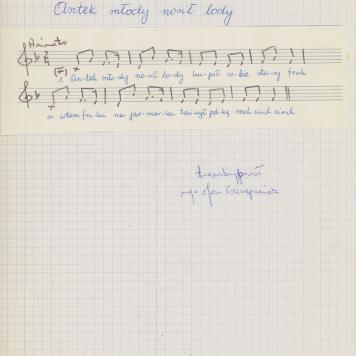 Antek młody nosił lody
Animato
1. An-tek mło-dy no-sił lo-dy ku-pił so-bie sta-ry frak
a wtem fra-ku na jar-mar-ku tań-czył pol-kę rach ciach ciach.
Transkrybował
mgr Jan